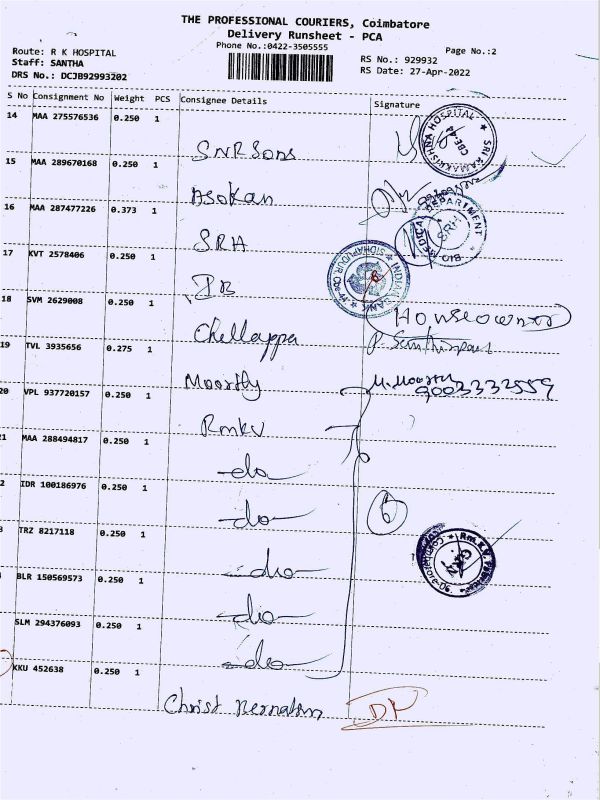 THE PROFESSIONAL COURIERS, Coimbatore
Delivery Runsheet - PCA
Phone No.:0422-3505555
Page No.:2
Route: R K HOSPITAL
RS No.: 929932
Staff: SANTHA
RS Date: 27-Apr-2022
DRS No.: DCJB92993202
S No Consignment No Weight PCS Consignee Details Signature
14 MAA 275576536 0.250 1
SNR Sons
SRI RAMAKRISHNA HOSPITAL CBE-44
15 MAA 289670168 0.250 1
Asokan
16 MAA 287477226 0.373 1
SRH
BIO MEDICAL DEPARTMENT SRH
17 KVT 2578406 0.250 1
IB
INDIAN BANK
18 SVM 2629008 0.250 1
Houseowner
Chellappa
19 TVL 3935656 0.275 1
Moorthy
M. Moorthy
9003332559
20 VPL 937720157 0.250 1
Rmkv
21 MAA 288494817 0.250 1
-do-
2 IDR 100186976 0.250 1
-do-
6
TRZ 8217118 0.250 1
-do-
BLR 150569573 0.250 1
-do-
SLM 294376093 0.250 1
-do-
KKU 452638 0.250 1
Christ